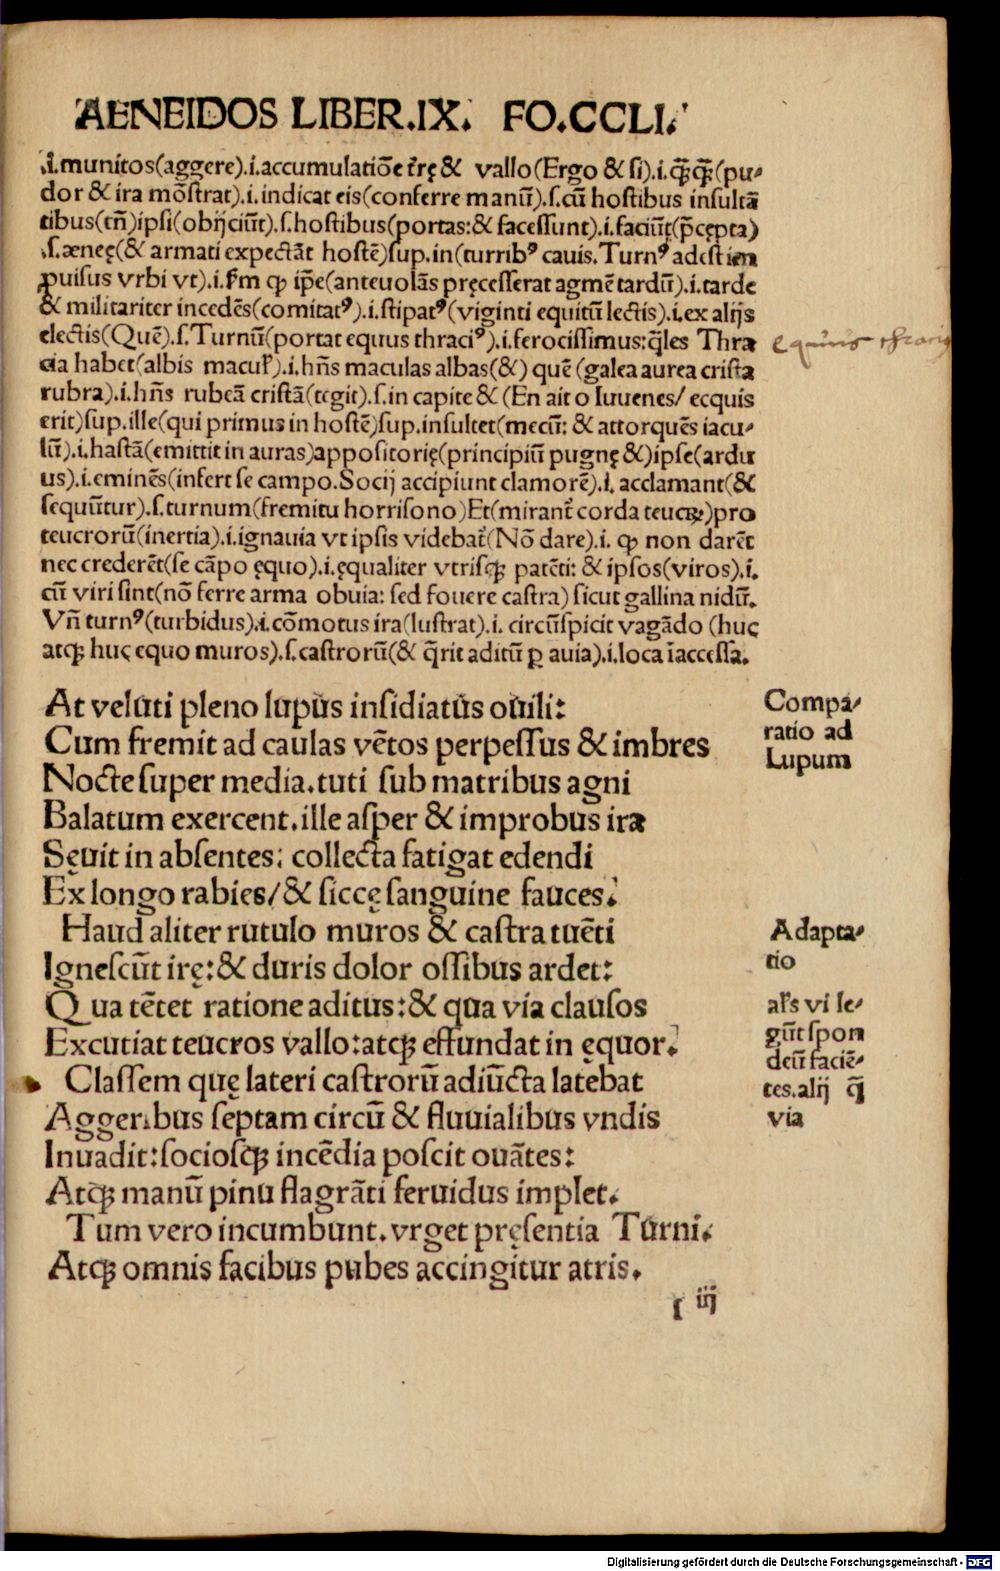 AENEIDOS LIBER.IX. FO.CCLI.
.i.munitos(aggere).i.accumulatiõe t̃rę & vallo(Ergo & si).i.q̃q̃(pu-
dor & ira mõstrat).i.indicat eis(conferre manũ).s.cũ hostibus insultã
tibus(tñ)ipsi(obijciũt).s.hostibus(portas:& facessunt).i.faciũt(p̃cępta)
.s.ænęę(& armati expectãt hostẽ)sup.in(turribꝰ cavis.Turnꝰ adest im
ꝓuisus vrbi vt).i.ſm ꝙ ip̃e(anteuolãs pręcesserat agmẽ tardũ).i.tarde
& militariter incedẽs(comitatꝰ).i.stipatꝰ(viginti equitũ lectis).i.ex alijs
electis(Quẽ).s.Turnũ(portat equus thraciꝰ).i.ferocissimus:q̃les Thra
cia habet(albis macul̕).i.hñs maculas albas(&) quẽ (galea aurea crista
rubra).i.hñs rubeã cristã(tegit).s.in capite & (En ait o Iuuenes/ ecquis
erit)sup.ille(qui primus in hostẽ)sup.insultet(mecũ: & attorquẽs iacu-
lũ).i.hastã(emittit in auras)appositorię(principiũ pugnę &)ipse(ardu
us).i.eminẽs(infert se campo.Socij accipiunt clamorẽ).i. acclamant(&
sequũtur).s.turnum(fremitu horrisono)Et(mirant̃ corda teucꝝ)pro
teucrorũ(inertia).i.ignauia vt ipsis videbat̃(Nõ dare).i. ꝙ non darẽt
nec crederẽt(se cãpo ęquo).i.ęqualiter vtrisqꝫ patẽti: & ipsos(viros).i.
cũ viri sint(nõ ferre arma obuia: sed fouere castra) sicut gallina nidũ.
Vñ turnꝰ(turbidus).i.cõmotus ira(lustrat).i. circũspicit vagãdo (huc
atqꝫ huc equo muros).s.castrorũ(& q̃rit aditũ ꝑ avia).i.loca ĩaccessa.
At veluti pleno lupus insidiatus ouili:
Cum fremit ad caulas vẽtos perpessus & imbres
Nocte super media.tuti sub matribus agni
Balatum exercent.ille asper & improbus ira
Sęuit in absentes: collecta fatigat edendi
Ex longo rabies/& siccę sanguine fauces.
Haud aliter rutulo muros & castra tuẽti
Ignescũt irę:& duris dolor ossibus ardet:
Qua tẽtet ratione aditus:& qua via clausos
Excutiat teucros vallo:atqꝫ effundat in ęquor.
Classem quę lateri castrorũ adiũcta latebat
Aggeribus septam circũ & fluuialibus vndis
Inuadit:sociosqꝫ incẽdia poscit ouãtes:
Atqꝫ manũ pinu flagrãti feruidus implet.
Tum vero incumbunt.vrget pręsentia Turni.
Atqꝫ omnis facibus pubes accingitur atris.
ſ iij
equus thraciꝰ
Compa-
ratio ad
Lupum
Adapta-
tio
al's vi le-
gũt spon
deũ faciẽ-
tes.alij q̃
via
Digitalisierung gefördert durch die Deutsche Forschungsgemeinschaft - DFG